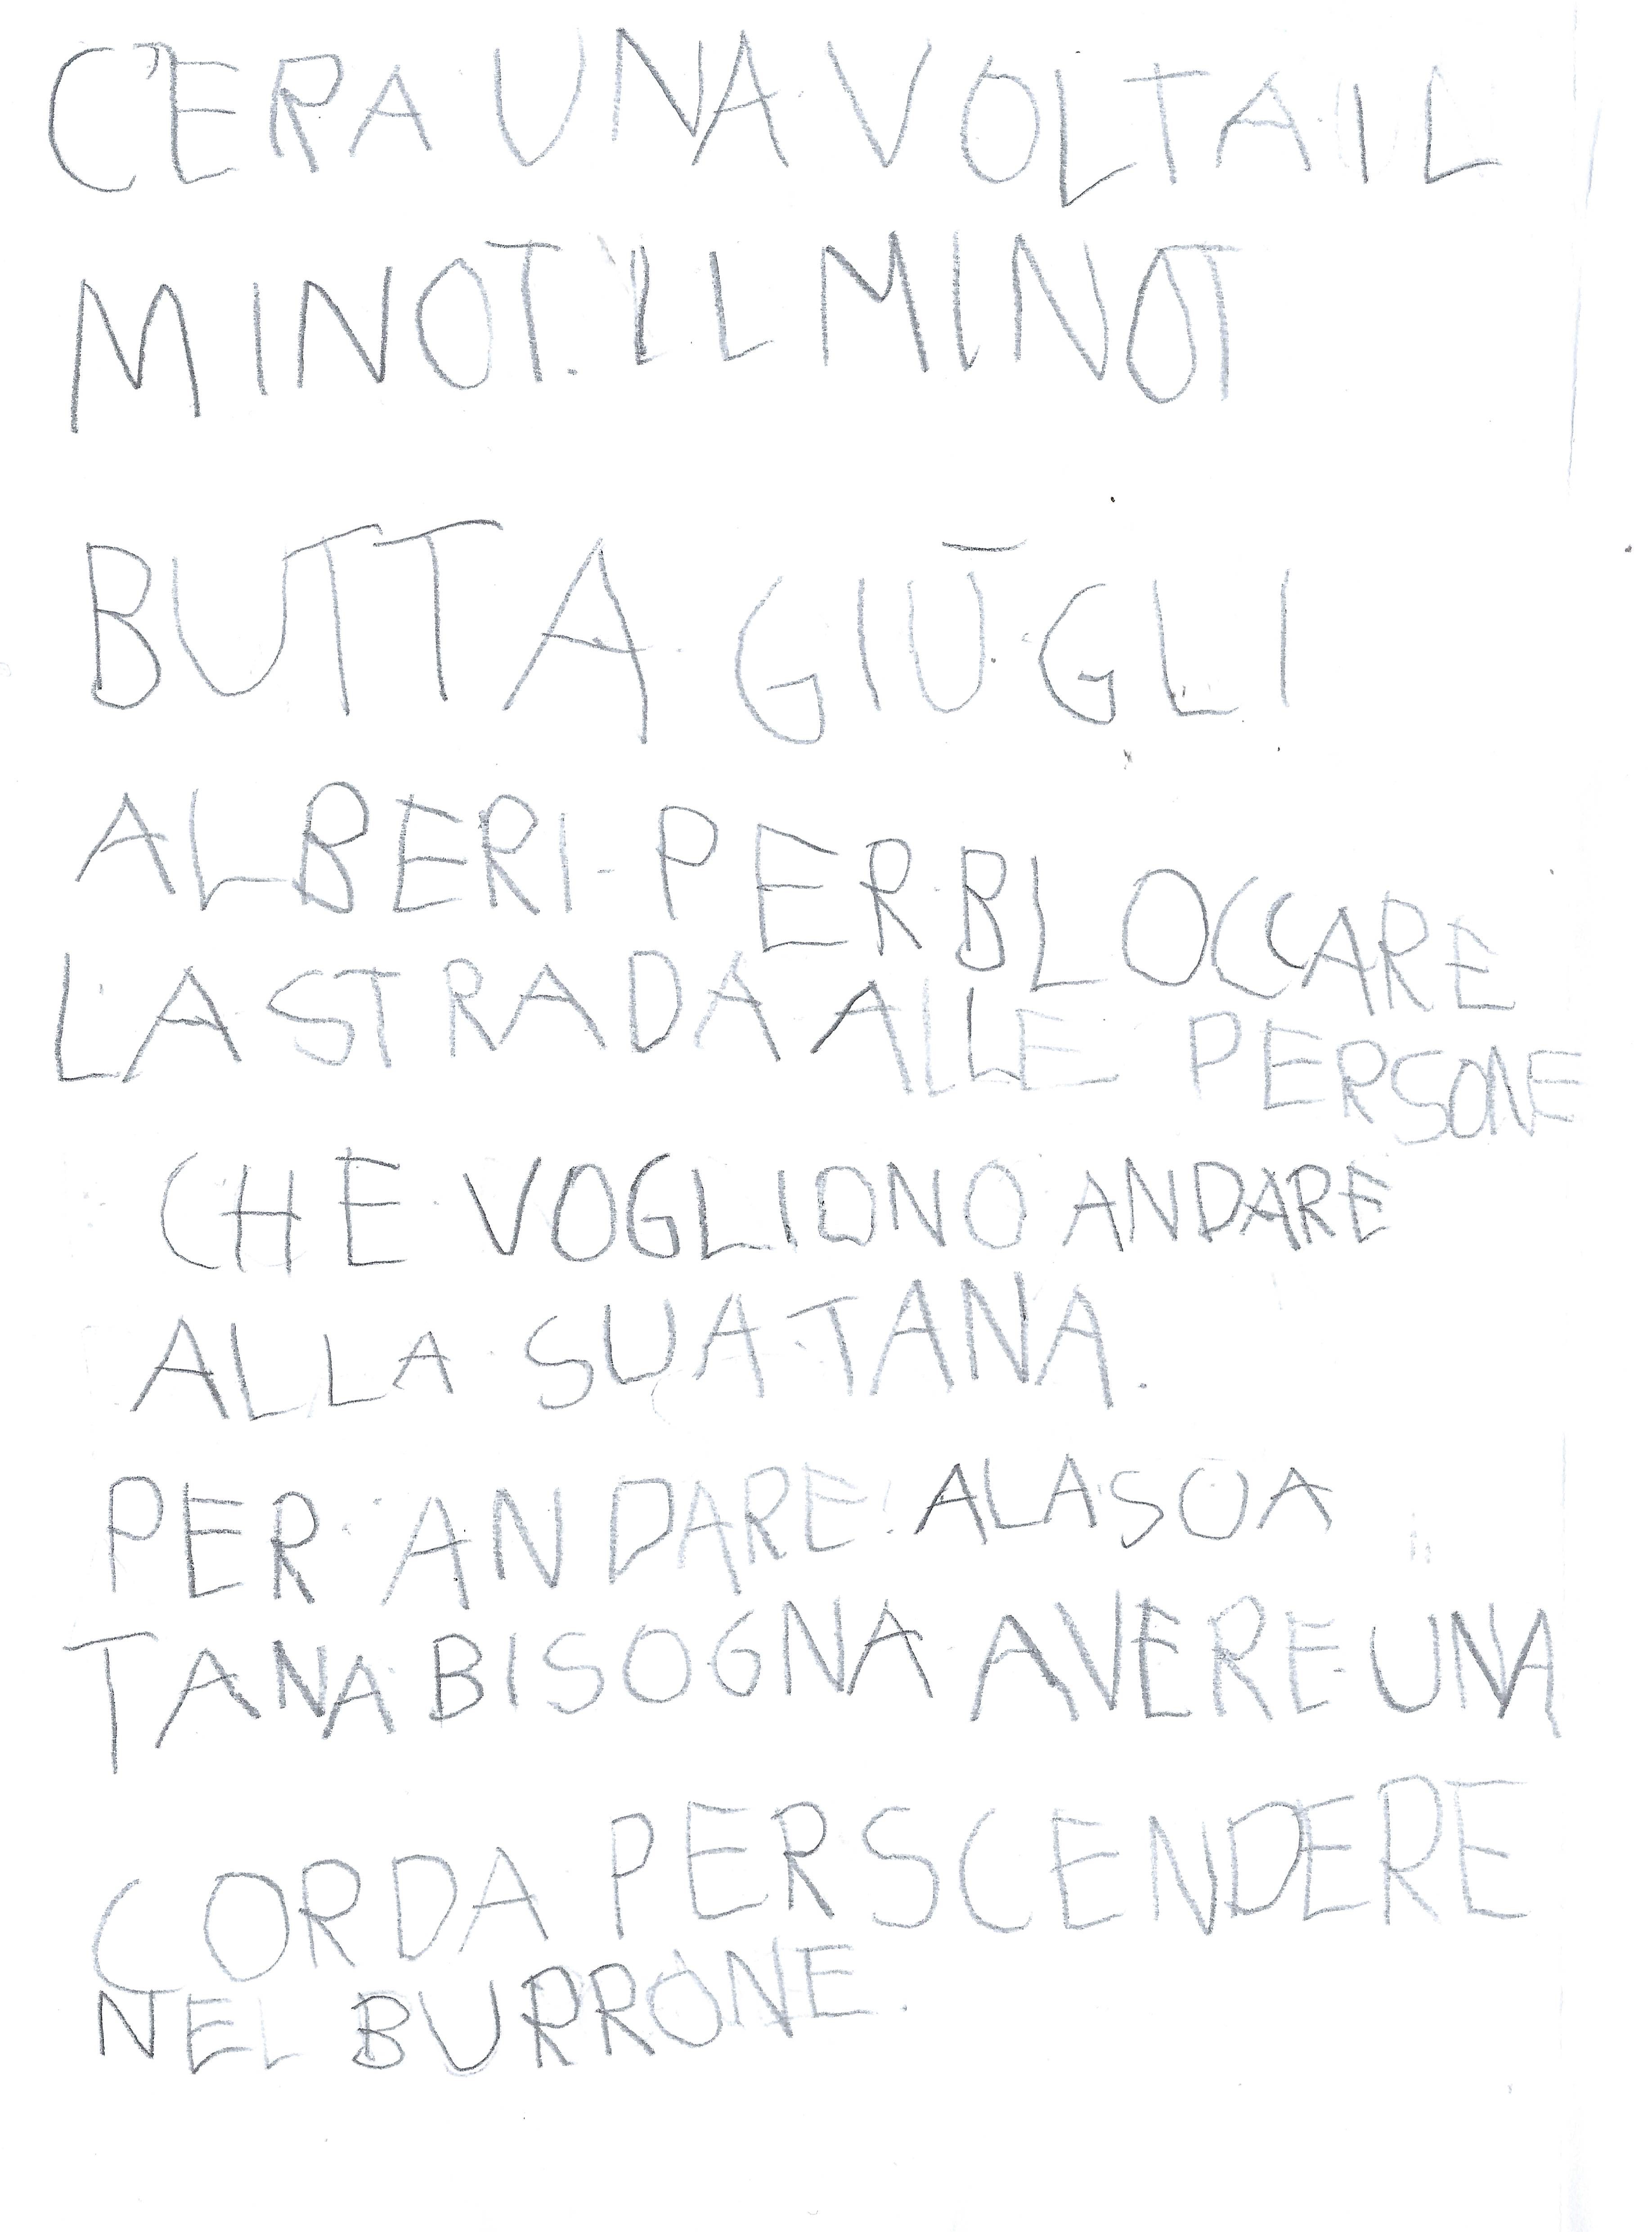 C'ERA UNA VOLTA IL
MINOT. IL MINOT
BUTTA GIÙ GLI
ALBERI - PER BLOCCARE
LA STRADA ALLE PERSONE
CHE VOGLIONO ANDARE
ALLA SUA TANA.
PER ANDARE ALA SOA
TANA BISOGNA AVERE UNA
CORDA PER SCENDERE
NEL BURRONE.